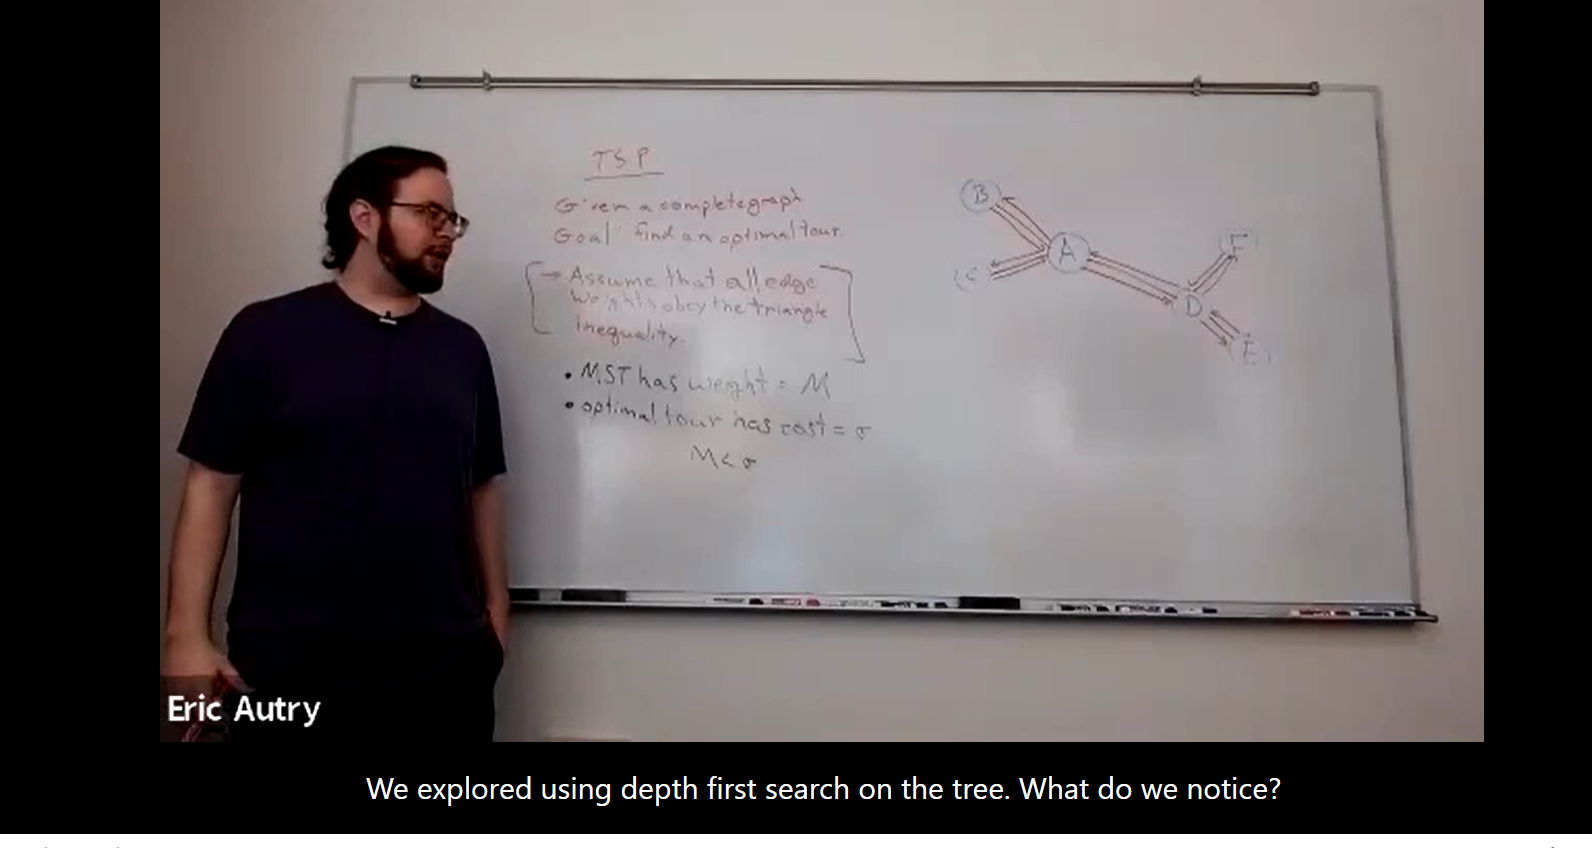 TSP
Given a complete graph
Goal: find an optimal tour.
→ Assume that all edge
weights obey the triangle
inequality.
• MST has weight = M
• optimal tour has cost = σ
M < σ
B
A
C
F
D
E
Eric Autry
We explored using depth first search on the tree. What do we notice?